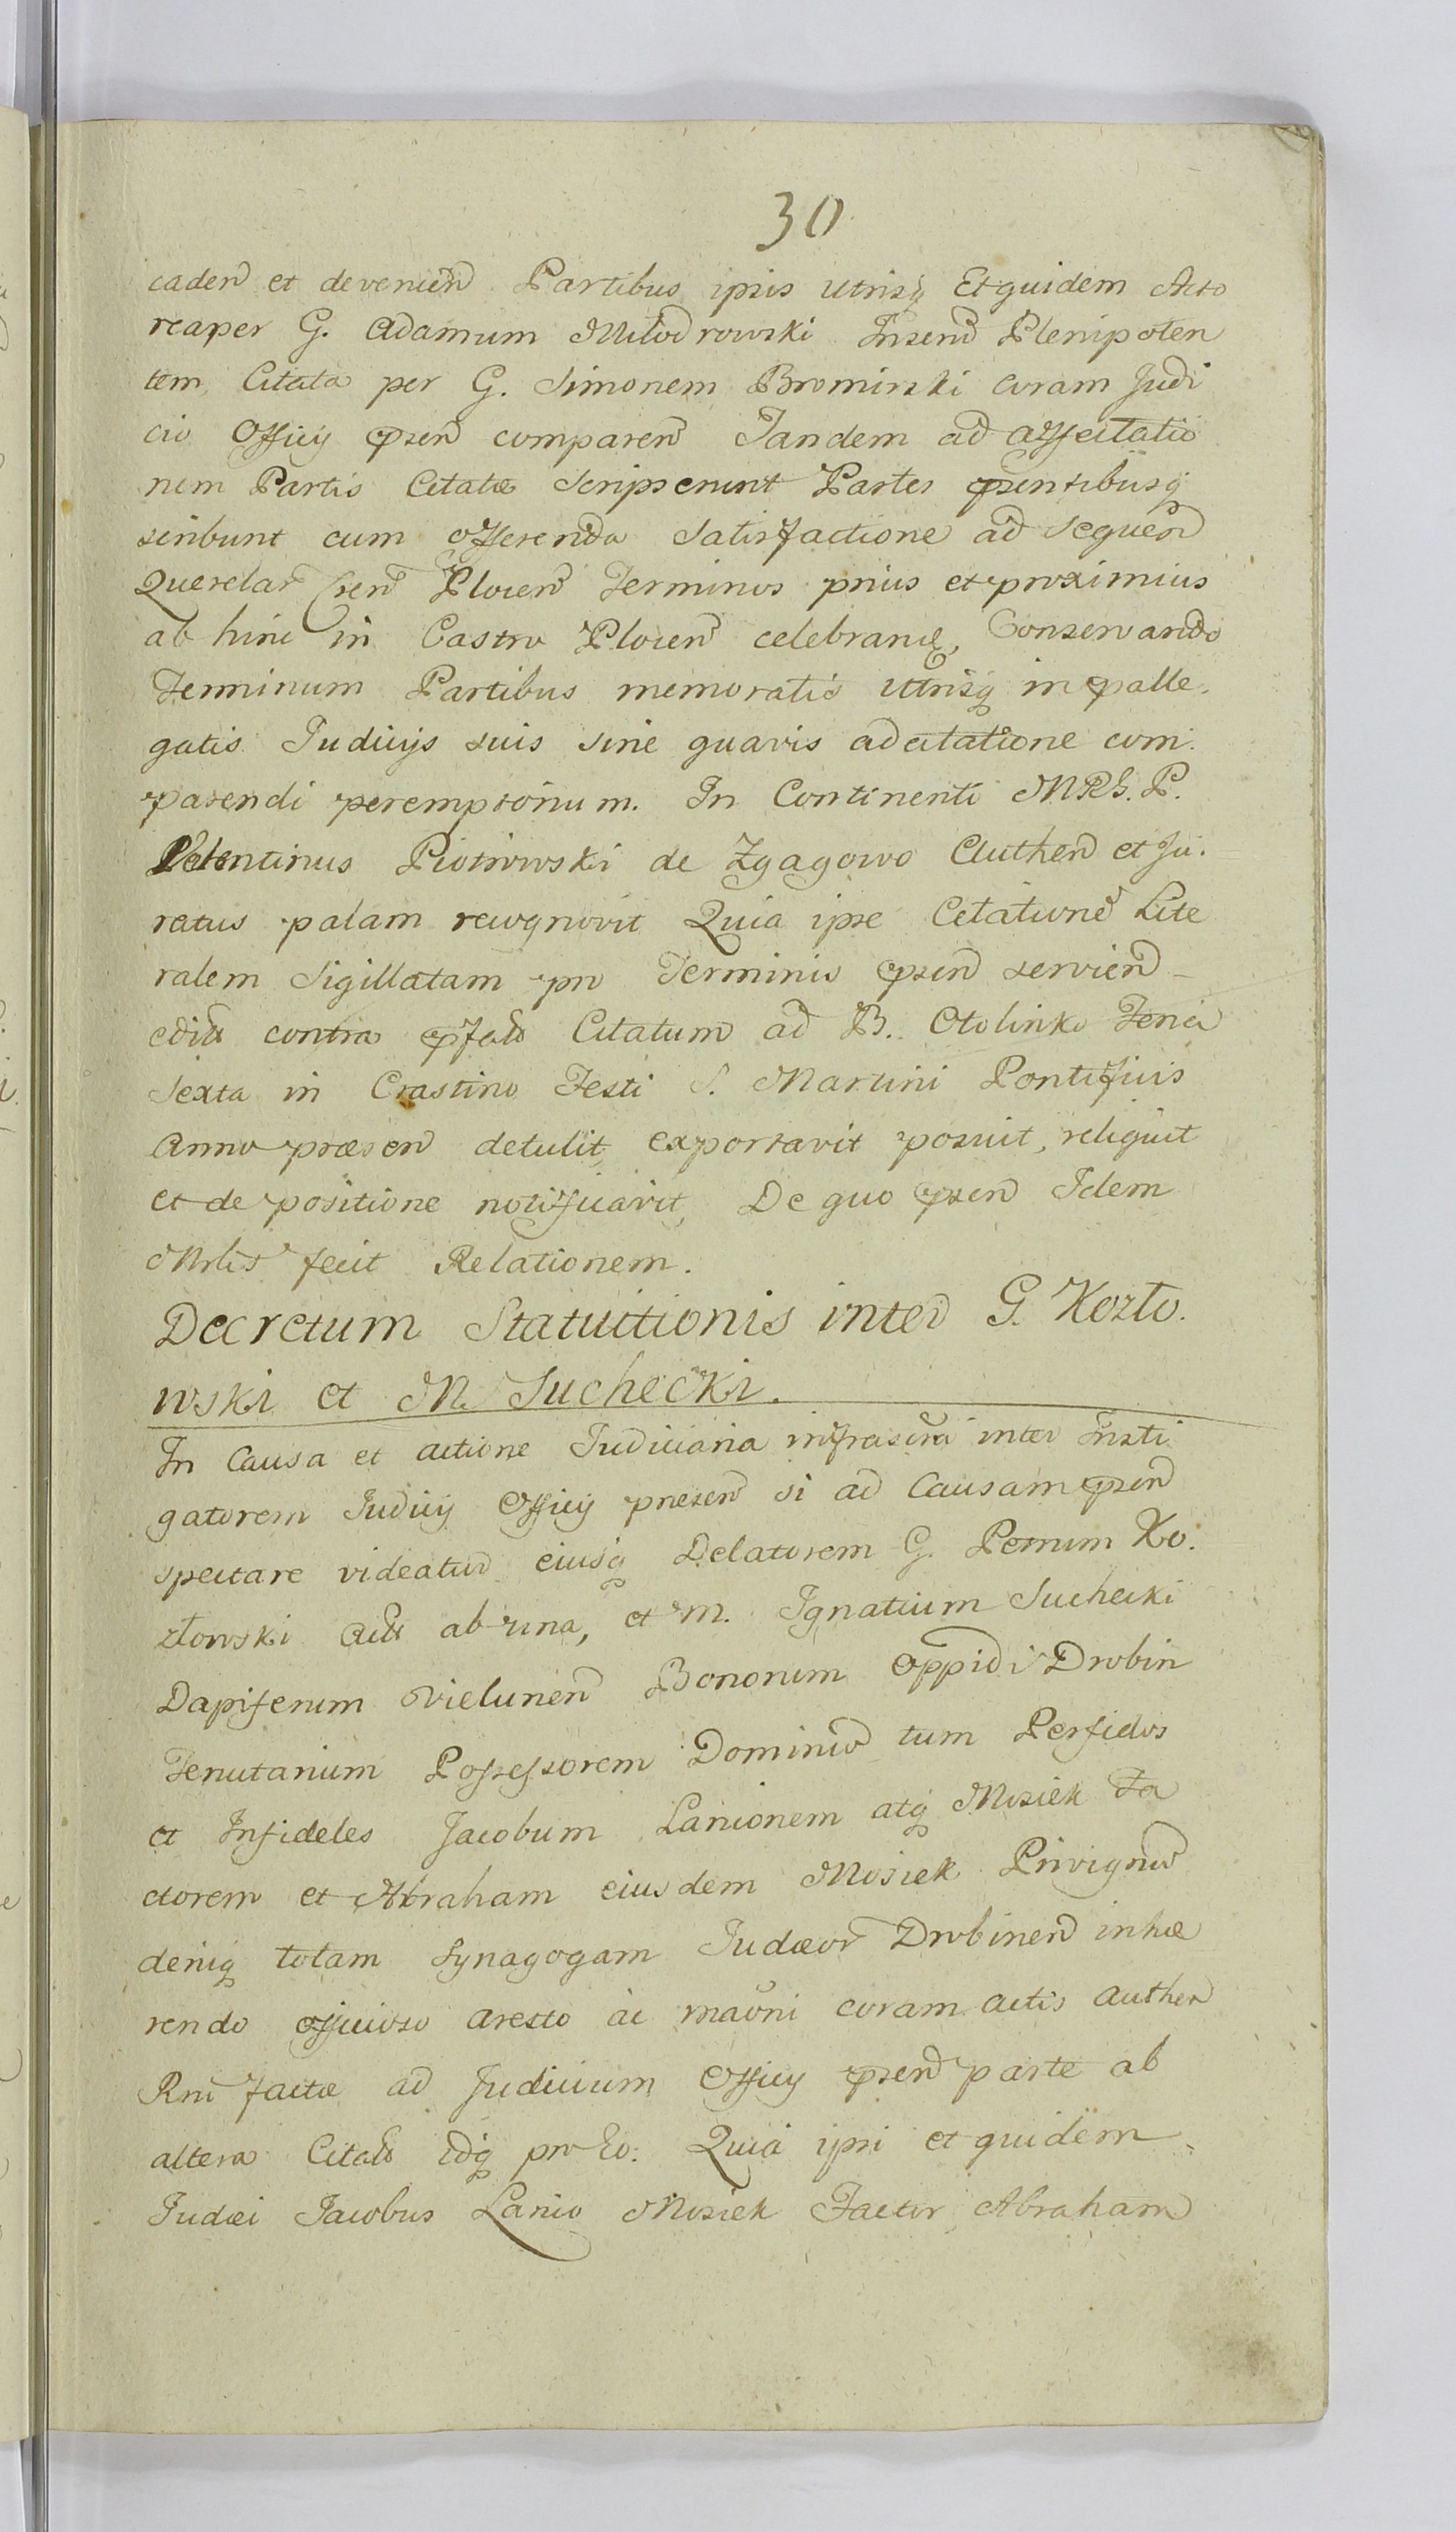 30
caden et devenien Partibus ipsis utrisq Et quidem Acto
rea per G. Adamum Miłodrowski Insend Plenipoten
tem, Citata per G. Simonem Bromirski coram Judi
cio Officij psen comparen Tandem ad affectatio
nem Partis Citatæ Scripserunt Partes psentibusq
scribunt cum offerenda Satisfactione ad sequen
Querelar Cren Plocen Terminos prius et proximius
ab hinc in Castro Plocen celebranđ, Conservando
Terminum Partibus memoratis utrisq in palle,
gatis Judicijs suis sine quavis adcitatione com.
parendi peremptorium. In Continenti MRS. P.
Valentinus Piotrowski de Zgagowo Authen et Ju.
ratus palam recognovit Quia ipse Citatione Lite
ralem Sigillatam pro Terminis psen servien
edit contra pfato Citatum ad B. Otolinko Feria
Sexta in Crastino Festi S. Martini Pontificis
Anno præsen detulit, exportavit posuit, reliquit
et de positione notificavit, De quo psen Idem
Mrlis fecit Relationem.
Decretum Statuitionis inter G. Kozło.
wski et M. Suchecki.
In Causa et actione Judiciaria infrascra inter Insti
gatorem Judicij Officij presen si ad Causam psen
spectare videatur eiusq Delatorem G. Petrum Ko.
złowski Act ab una, et M. Ignatium Suchecki
Dapiferum Vielunen Bonorum Oppidi Drobin
Tenutarium Possessorem Dominu tum Perfidos
et Infideles Jacobum Lanionem atq Mosiek Fa
ctorem et Abraham eiusdem Mosiek Privignu
deniq totam Synagogam Judæor Drobinen inhæ
rendo officioso aresto ac maoni coram actis authen
Rni factæ ad Judicium Officij psen parte ab
altera Citato Idq pro Eo: Quia ipsi et quidem
Judæi Jacobus Lanio Mosiek Factor Abraham